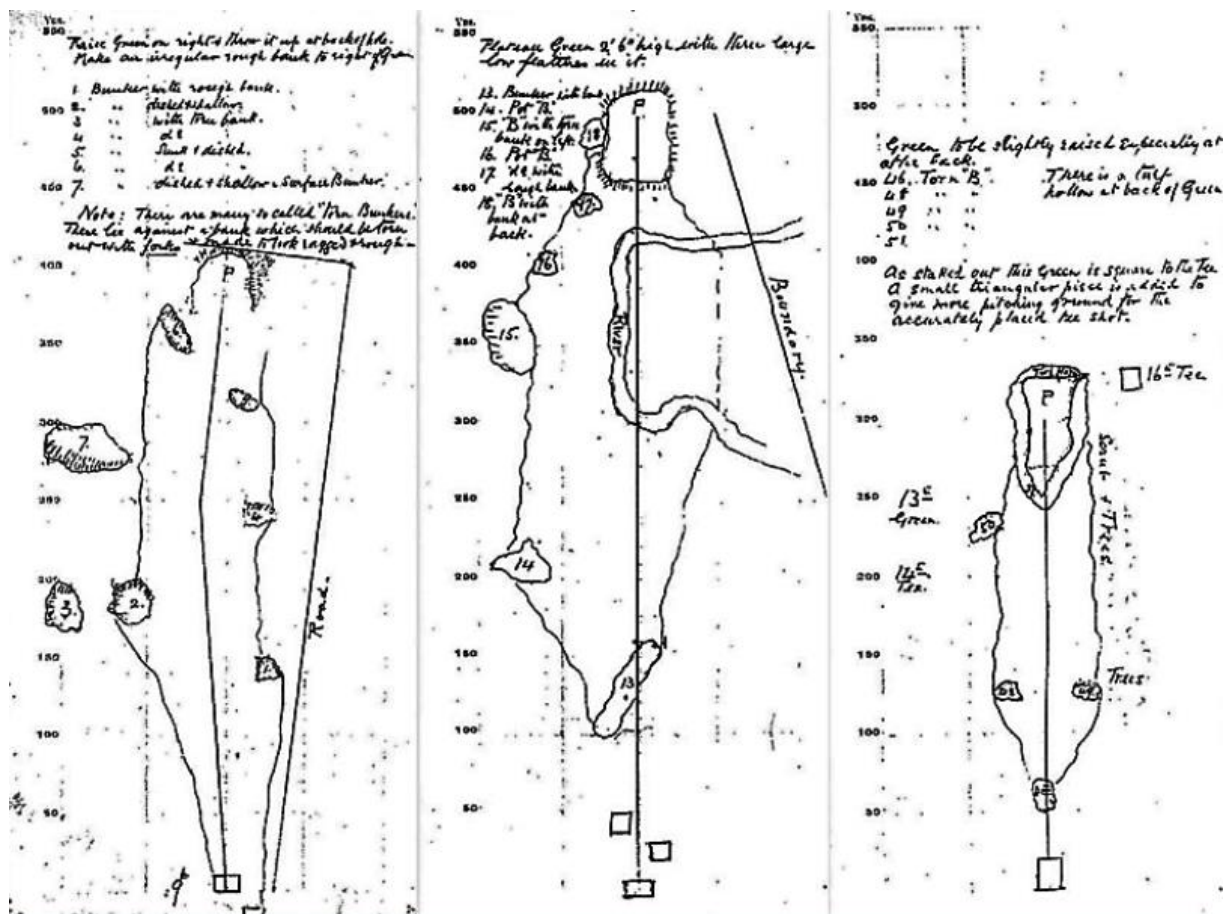 Yds.
550
Raise Green on right & throw it up at back of do.
Make an irregular rough bank to right of Green
1 Bunker with rough bank.
500 2. " dished & shallow.
3 " with torn bank.
4 " do
5 " Sunk & dished.
6. " do "
450 7. " dished & shallow & Surface Bunker.
Note: There are many so called "Torn Bunkers".
These lie against a bank which should be torn
out with forks & made to look ragged & rough -
400
P
350
300
7.
250
4
200
3.
2.
Road.
150
1.
100
50
Yds.
550
Plateau Green 2' 6" high with three large
low flattures in it.
13. Bunker with bank
500 14. Pot "B".
15. "B" with torn
bank on left.
16. Pot "B".
17 do with
rough bank
450
18. "B" with
bank at
back.
P
18
17.
400
16
Boundary.
350
15.
River
300
250
14
200
150
13
100
50
Yds.
550
500
Green to be slightly raised especially at
at the back.
450 46. Torn "B".
There is a turf
48 " "
hollow at back of Green
49 " "
50 " "
51.
400
As staked out this Green is square to the Tee
A small triangular piece is added to
give more pitching ground for the
accurately placed tee shot.
350
16th Tee
P
300
Scrub + Trees
250
13th
Green.
50
14th
Tee.
200
150
Trees
48
49
100
50